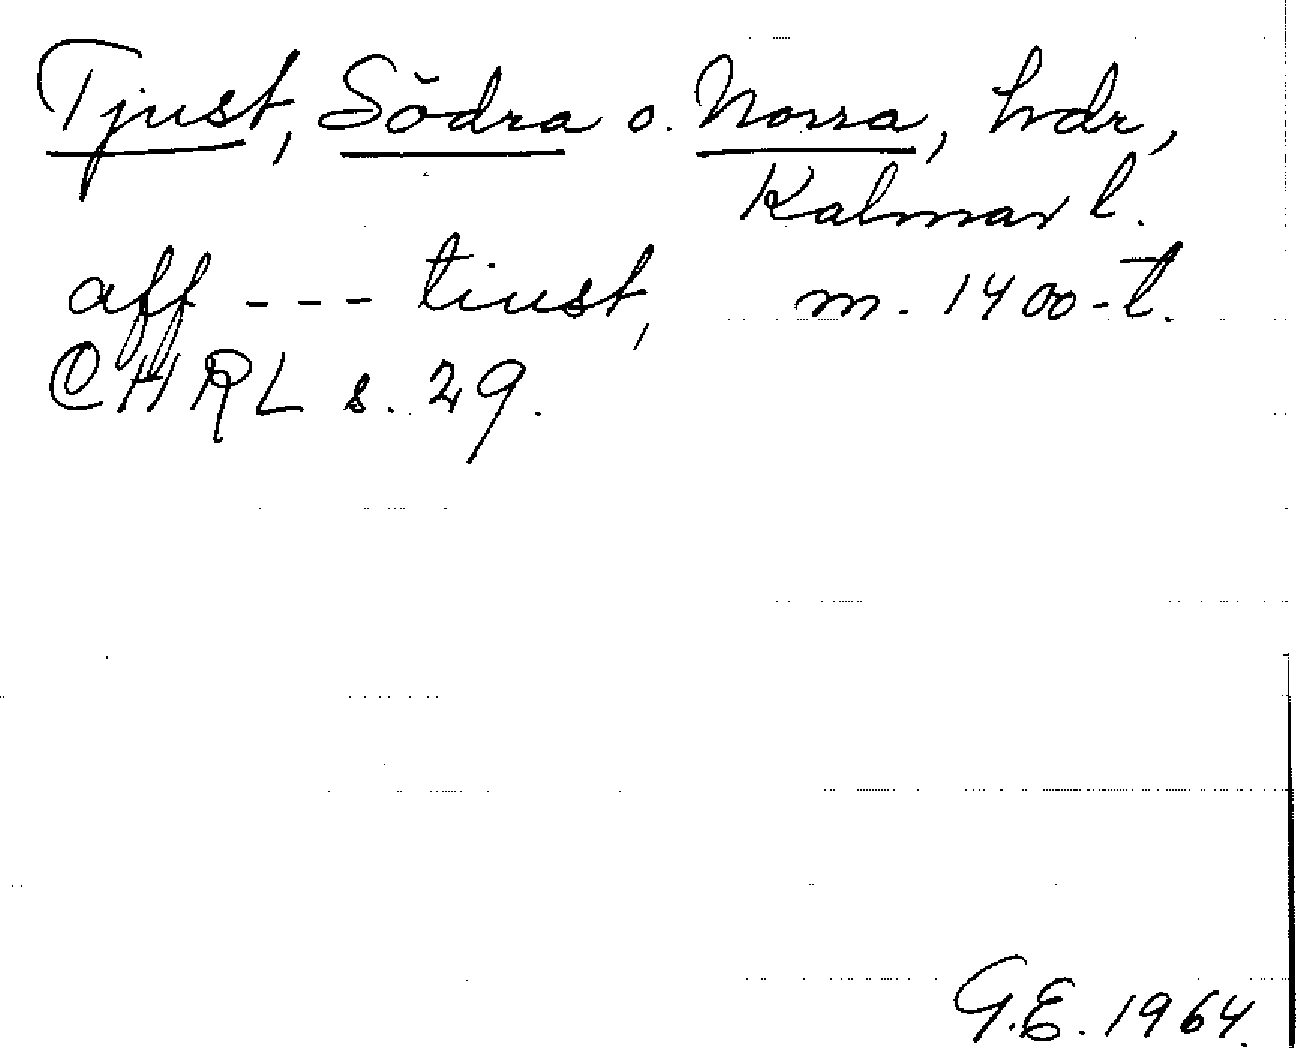 Tjust, Södra o. Norra, hdr,
Kalmar l.
aff --- tiust, m. 1400-t.
CHRL s. 29.
G.E. 1964.